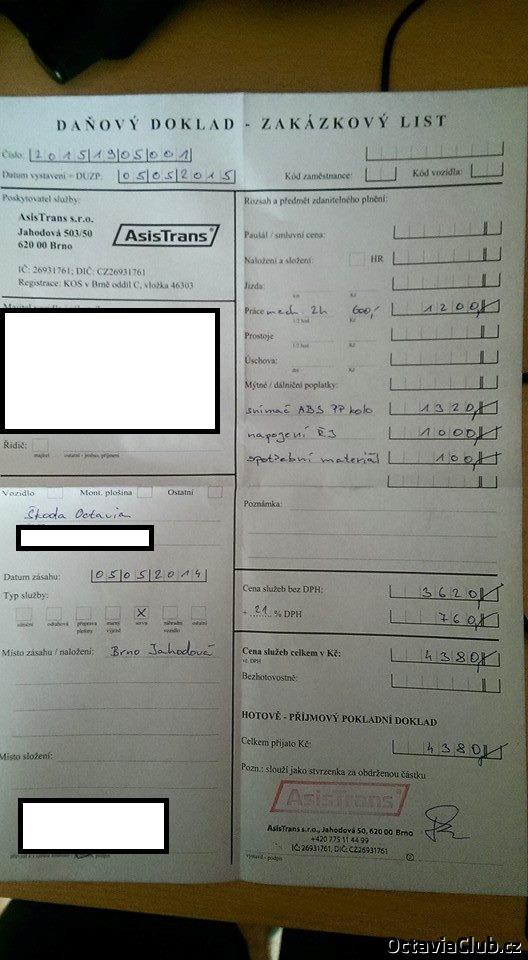 DAŇOVÝ DOKLAD - ZAKÁZKOVÝ LIST
Číslo: 20151905001
Datum vystavení = DUZP: 05052015
Kód zaměstnance:
Kód vozidla:
Poskytovatel služby:
AsisTrans s.r.o.
Jahodová 503/50
620 00 Brno
AsisTrans
IČ: 26931761; DIČ: CZ26931761
Registrace: KOS v Brně oddíl C, vložka 46303
Řidič:
majitel ostatní - jméno, příjmení
Vozidlo Mont. plošina Ostatní
Škoda Octavia
Datum zásahu: 05052014
Typ služby:
X
servis
náhradní vozidlo
ostatní
Místo zásahu / naložení: Brno Jahodová
Místo složení:
Rozsah a předmět zdanitelného plnění:
Paušál / smluvní cena:
Naložení a složení: HR
Jízda:
km Kč
Práce mech. 2h 600,- 1200
1/2 hod Kč
Prostoje
1/2 hod Kč
Úschova:
Kč
Mýtné / dálniční poplatky:
snímač ABS PP kolo 1320
napojení ŘJ 1000
spotřební materiál 100
Poznámka:
Cena služeb bez DPH: 3620
+ 21 % DPH 760
Cena služeb celkem v Kč: 4380
vč. DPH
Bezhotovostně:
HOTOVĚ - PŘÍJMOVÝ POKLADNÍ DOKLAD
Celkem přijato Kč: 4380
Pozn.: slouží jako stvrzenka za obdrženou částku
AsisTrans
AsisTrans s.r.o., Jahodová 50, 620 00 Brno
+420 775 11 44 99
IČ: 26931761, DIČ: CZ26931761
vystavil - podpis
OctaviaClub.cz